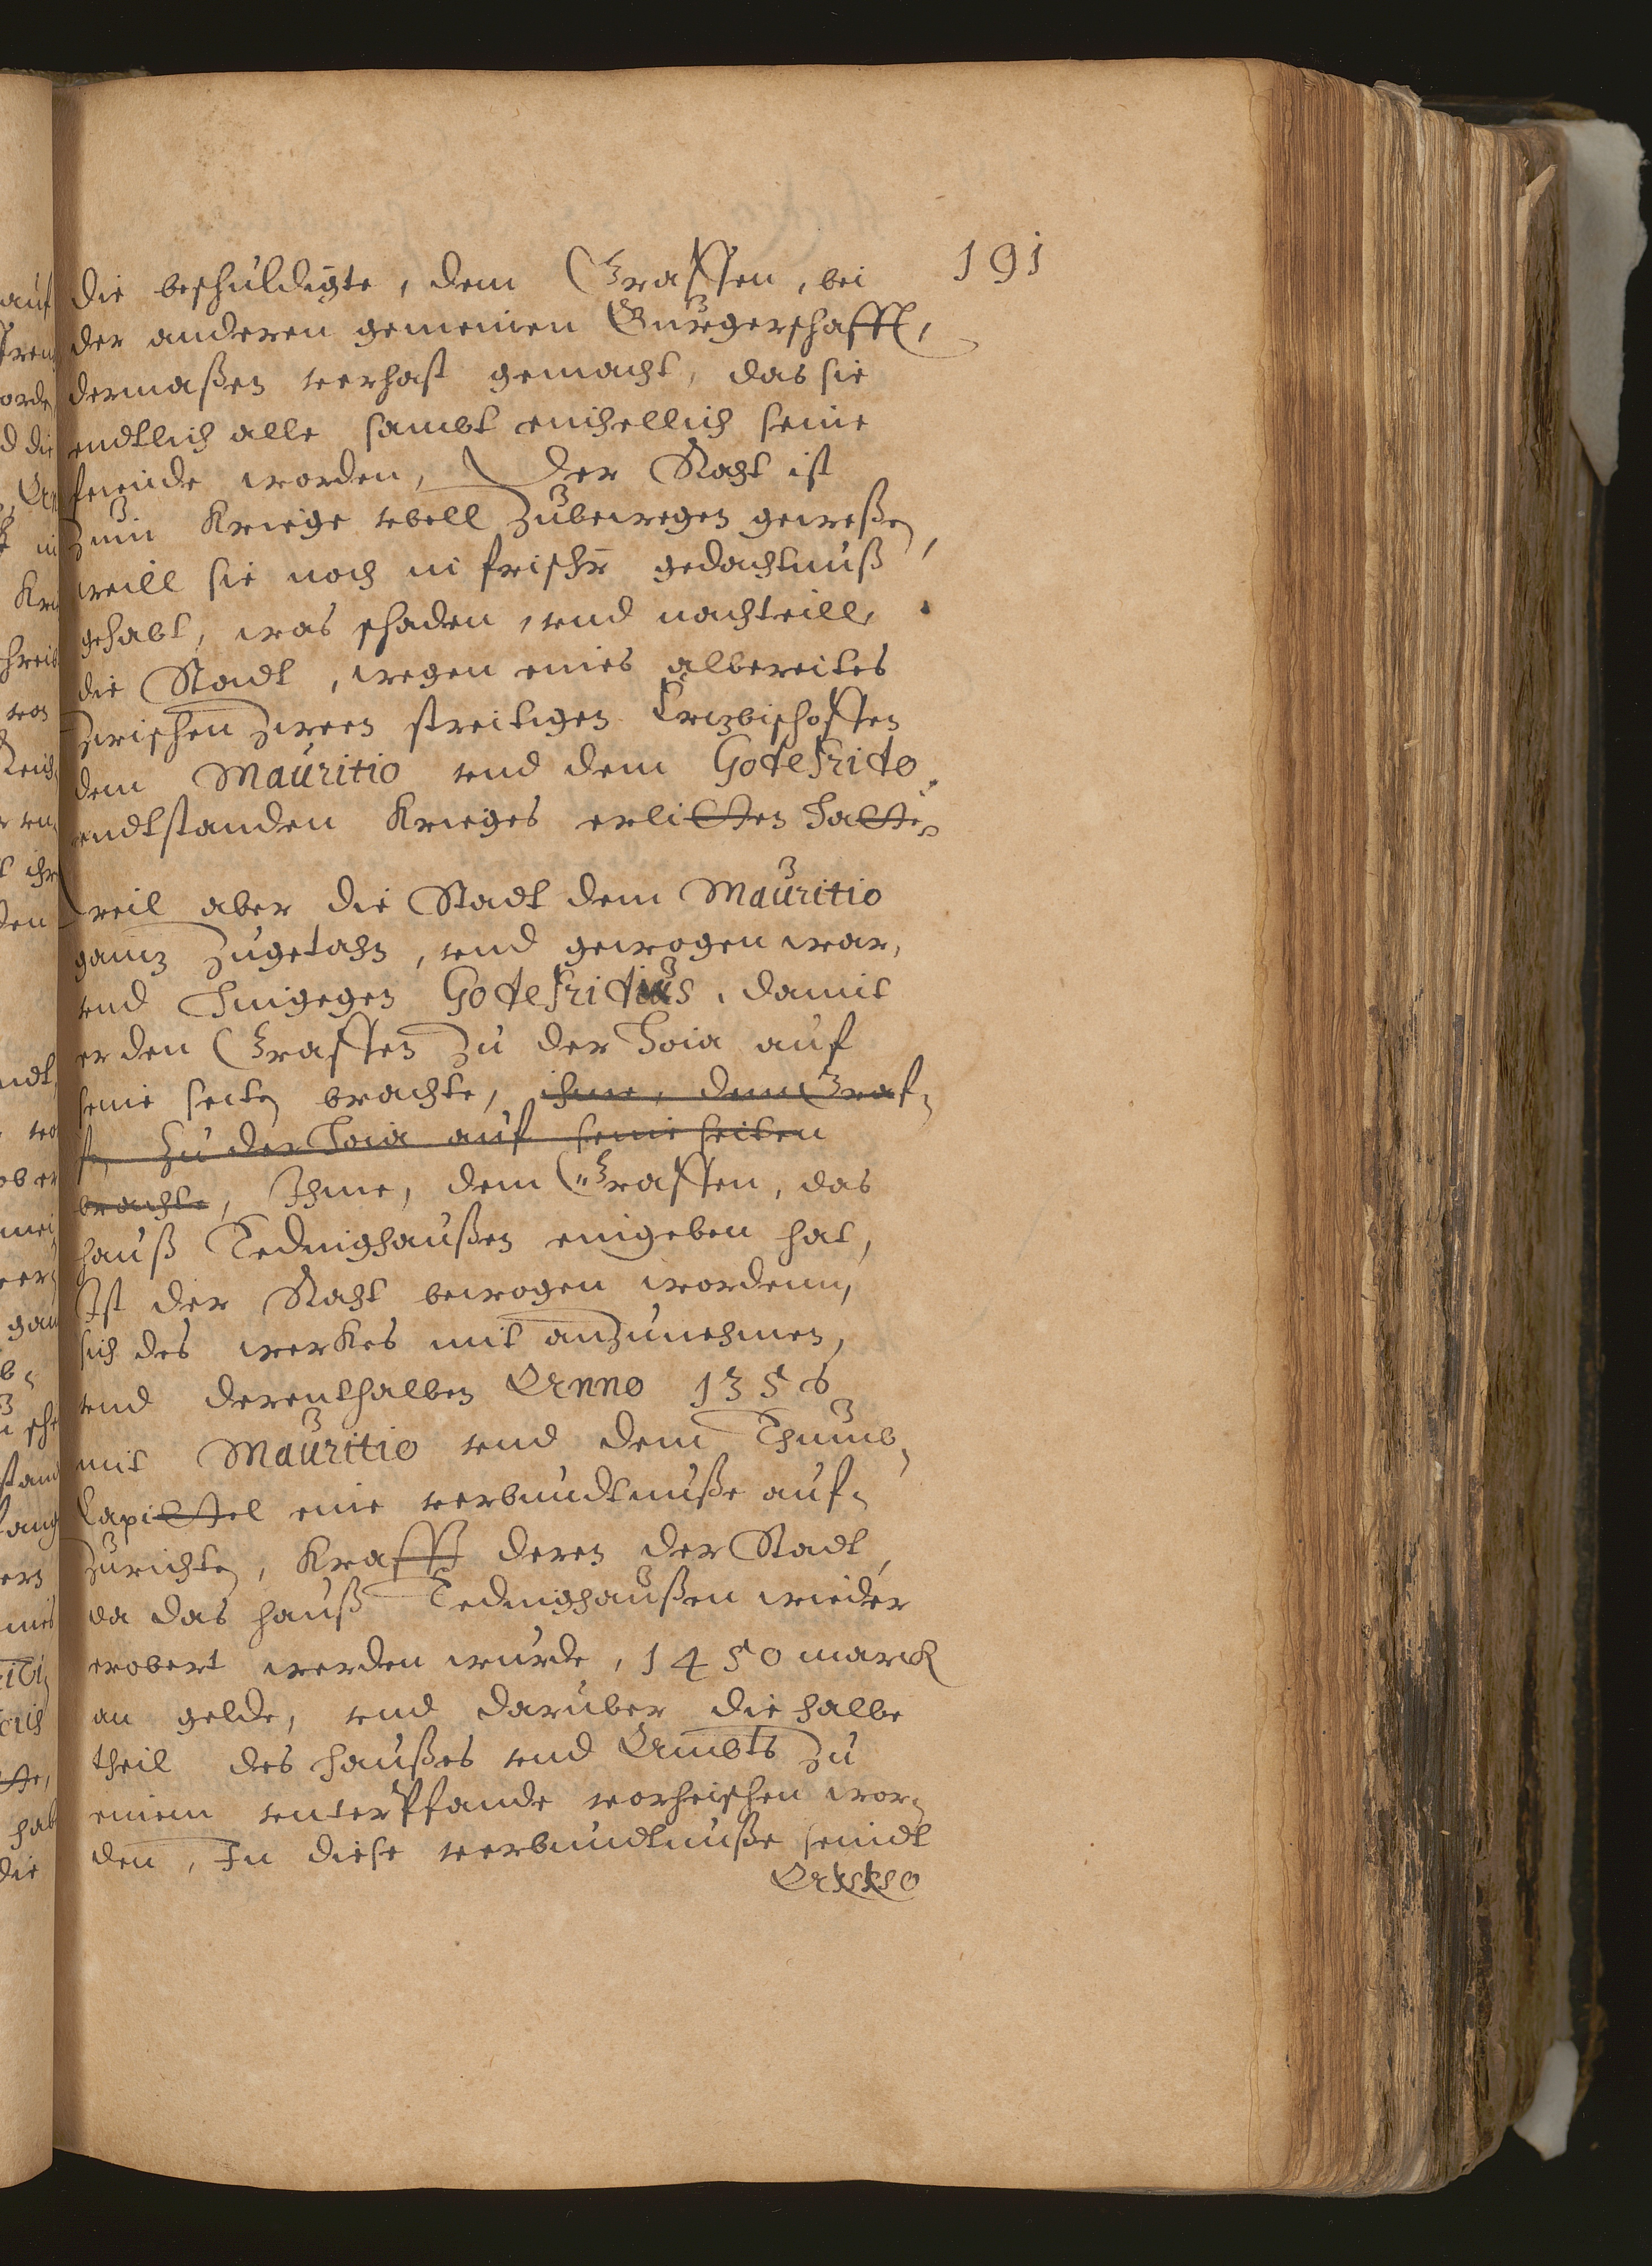 191
die beschuldigte, dem Graffen, bei
der anderen gemeinen Burgerschafft,
dermaßen verhast gemacht, das sie
endtlich alle sambt einhellich seine
feinde worden, Der Raht ist
zum Kriege ubell zubewegen geweßen,
weill sie noch in frischer gedachtnuß
gehabt, was schaden, und nachteill,
die Stadt, wegen eines albereites
zwischen zween streitigen Ertzbischoffen
dem Mauritio und dem Godefrido
endtstanden Krieges erlitten hatte,
weil aber die Stadt dem Mauritio
gantz zugetahn, und gewogen war,
und hingegen Godefridus, damit
er den Graffen zu der Hoia auf
seine seiten brachte, ihme, dem Graf-
f, zu der Hoia auf seine seiten
brachte, Ihme, dem Graffen, das
hauß Tedinghaußen eingeben hat,
Ist der Raht bewogen wordenn,
sich des werkes mit anzunehmen,
und derenthalben Anno 1356
mit Mauritio und dem Thumb-
Capittel eine verbundtnuße auf-
zurichten, Krafft deren der Stadt,
da das hauß Tedinghaußen wieder
erobert werden wurde, 1450 marck
an gelde, und daruber die halbe
theil des haußes und Ambts zu
einem unterPfande vorheischen wor-
den, In diese verbundtnuße seindt